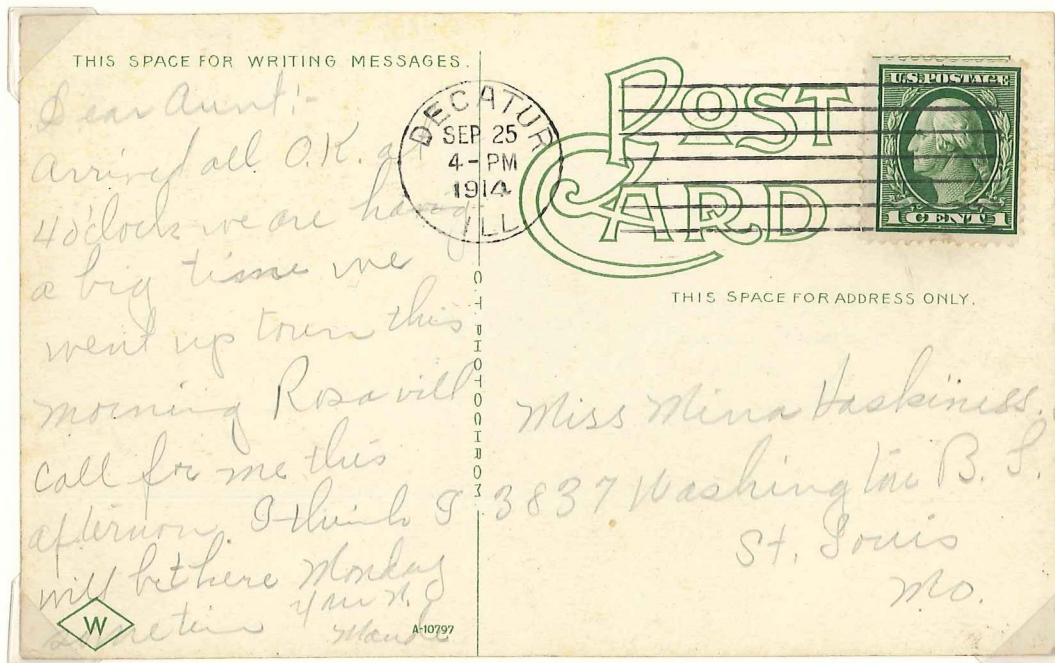 THIS SPACE FOR WRITING MESSAGES.
Dear Aunt:-
Arrived all O.K. at
4 o'clock we are having
a big time we
went up town this
morning Rosa will
call for me this
afternoon. I think I
will be there Monday
sometime
Maude
W
A-10797
C.T. PHOTOCHROM
DECATUR
SEP 25
4-PM
1914
ILL.
POST
CARD
U.S. POSTAGE
1 CENT 1
THIS SPACE FOR ADDRESS ONLY.
Miss Mina
3837 Washington B.
St. Louis
Mo.